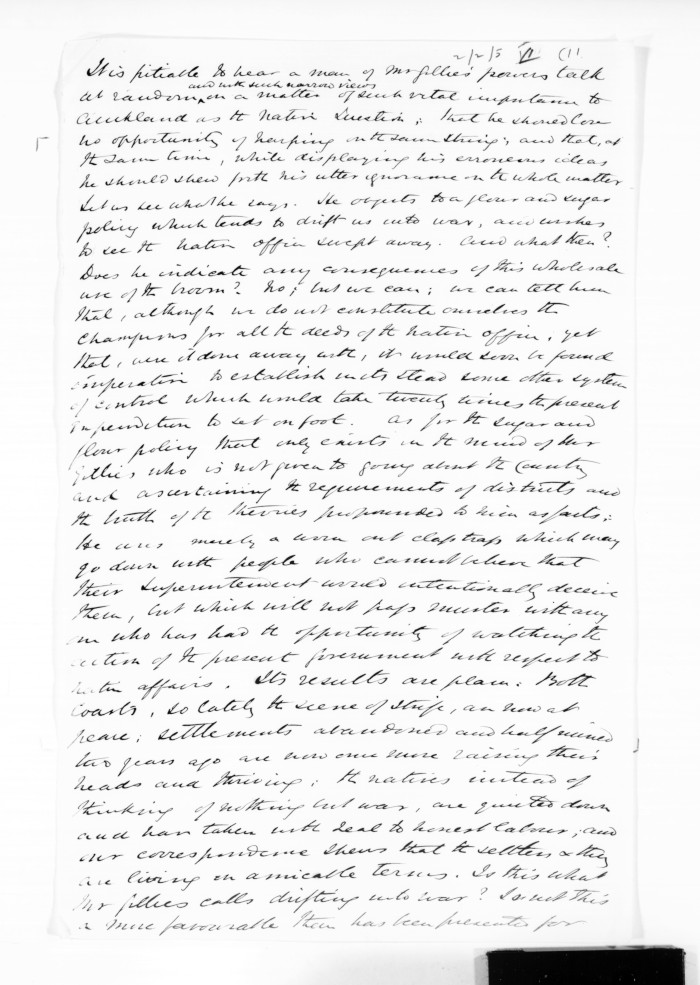 2/2/5 VI (11
It is pitiable to hear a man of Mr Gillies' powers talk
and with such narrow views
at random on a matter of such vital importance to
Auckland as the Native Question; that he should lose
no opportunity of harping on the same string; and that, at
the same time, while displaying his erroneous ideas
he should shew forth his utter ignorance on the whole matter
Let us see what he says. He objects to a flour and sugar
policy which tends to drift us into war, and wishes
to see the Native Office swept away. And what then?
Does he indicate any consequences of this wholesale
use of the broom? No; but we can; we can tell him
that, although we do not constitute ourselves the
champions for all the deeds of the Native Office, yet
that, were it done away with, it would soon be found
imperative to establish in its stead some other system
of control which would take twenty times the present
expenditure to set on foot. As for the sugar and
flour policy that only exists in the mind of Mr
Gillies who is not given to going about the Country
and ascertaining the requirements of districts and
the truth of the theories propounded to him as facts;
He uses merely a worn out claptrap which may
go down with people who cannot believe that
their Superintendent would intentionally deceive
them, but which will not pass muster with any
one who has had the opportunity of watching the
action of the present government with respect to
native affairs. Its results are plain: Both
Coasts, so lately the scene of strife, are now at
peace; settlements abandoned and half ruined
two years ago are now once more raising their
heads and thriving; the natives instead of
thinking of nothing but war, are quieted down
and have taken with zeal to honest labour; and
our correspondence shews that the settlers & they
are living on amicable terms. Is this what
Mr Gillies calls drifting into war? Is not this
a more favourable than has been presented for